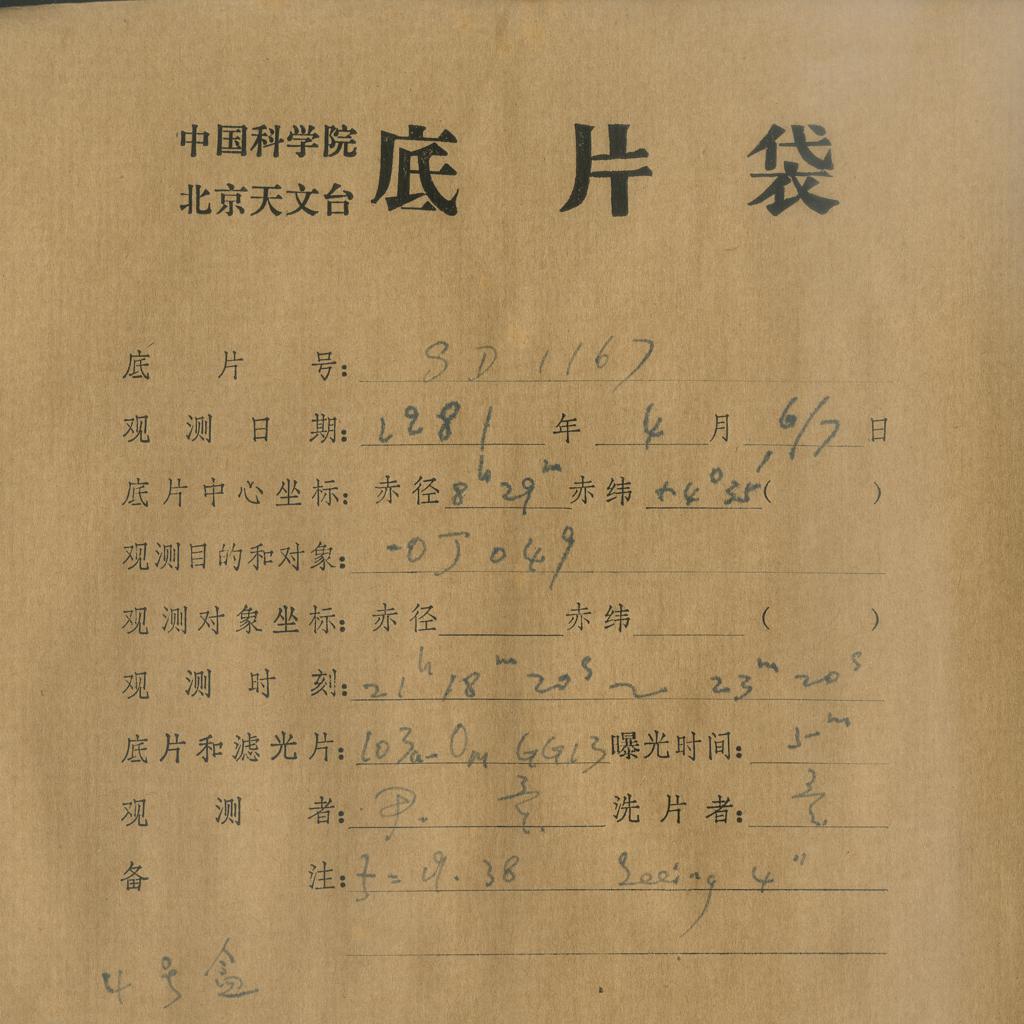 中国科学院
北京天文台
底片袋
底片号: SD 1167
观测日期: 1981年 4月 6/7日
底片中心坐标: 赤径 8h 29m 赤纬 +4°35′ ( )
观测目的和对象: -OJ 049
观测对象坐标: 赤径 赤纬 ( )
观测时刻: 21h 18m 20s ~ 23m 20s
底片和滤光片: 103a-O GG13 曝光时间: 5m
观测者: 洗片者:
备注: = 9.38 Seeing 4″
4号盒